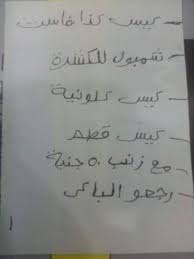 - كيس كذا فاست
- شمبول للكشدة
- كيس كلونية
- كيس قطم
مع زنب ٥٠ جنية
رجعو الباعى
١